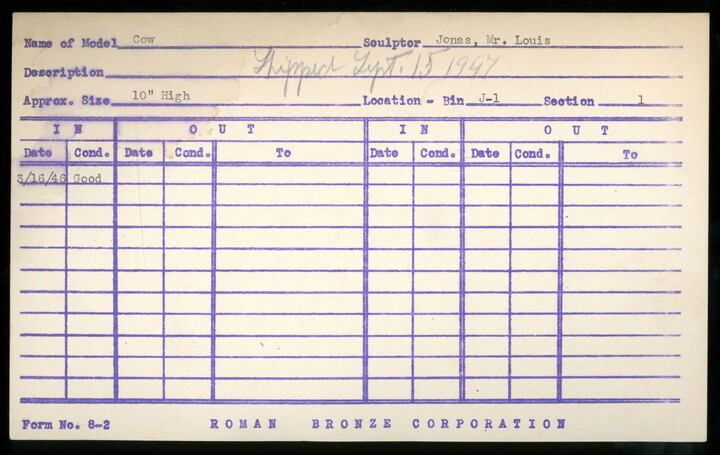 Name of Model Cow Sculptor Jonas, Mr. Louis
Description Shipped Sept. 15 1947
Approx. Size 10" High Location - Bin J-1 Section 1
IN OUT IN OUT
Date Cond. Date Cond. To Date Cond. Date Cond. To
3/16/46 Good
Form No. 8-2 ROMAN BRONZE CORPORATION